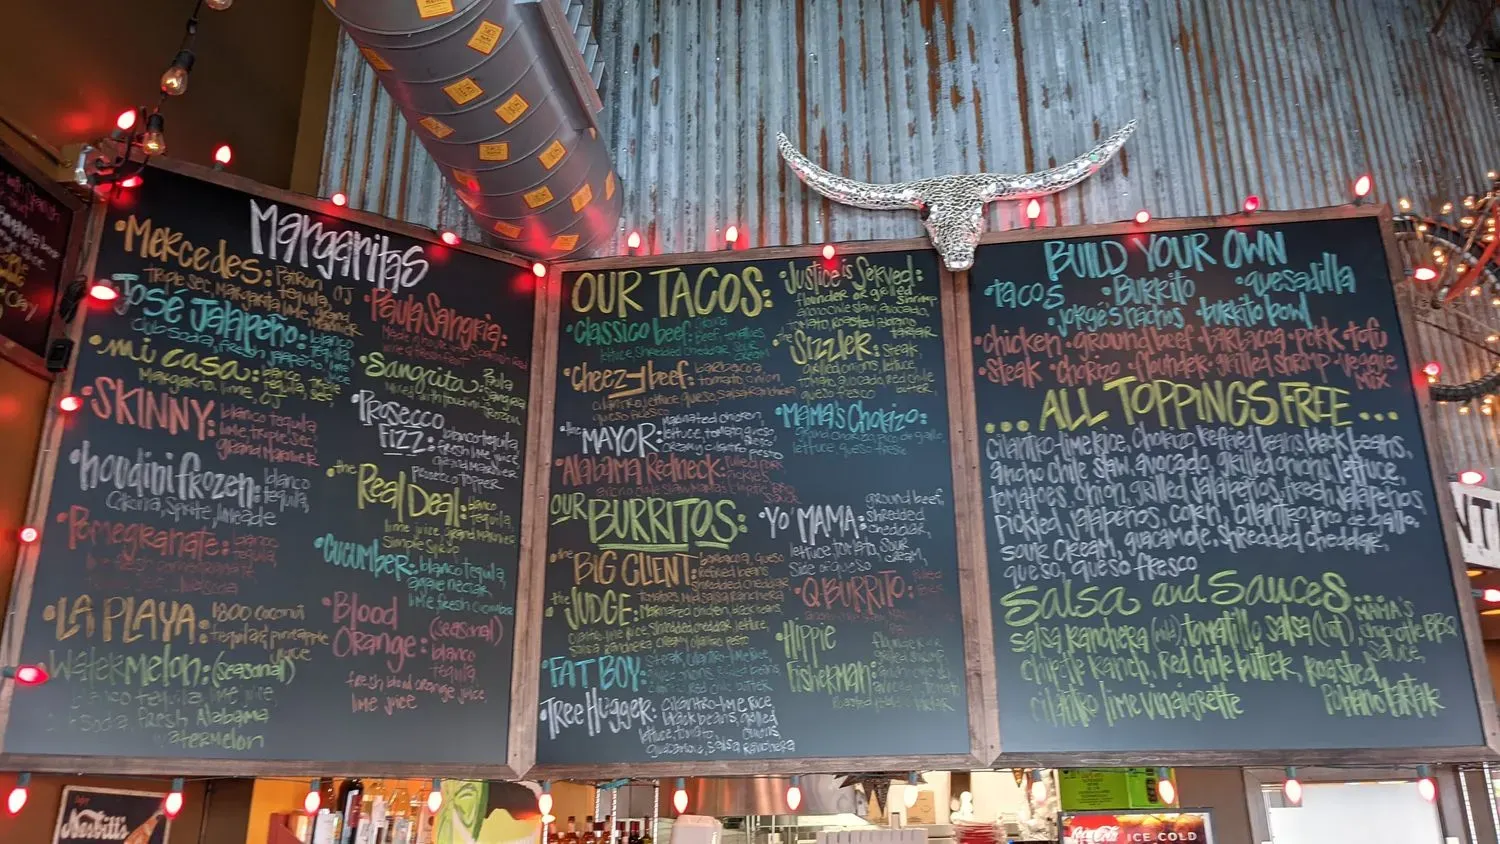 Margaritas
•Mercedes: Patron OJ
triple sec, Margarita lime, grand
tequila, Marnier
•José Jalapeño: blanco
tequila,
club soda, fresh jalapeño, lime
•mi casa: blanco triple
tequila, sec,
Margarita lime, OJ
•SKINNY: blanco tequila
lime, Triple Sec,
grand Marnier
•houdini frozen: blanco
tequila,
Corona, Sprite, limeade
•Pomegranate: blanco
tequila,
•LA PLAYA: 1800 coconut
tequila & pineapple
juice
•Watermelon: (seasonal)
blanco tequila, lime juice,
soda, fresh Alabama
watermelon
•Paula Sangria:
•Sangrita: Paula
Sangria
frozen
•Prosecco
Fizz: blanco tequila
fresh lime juice,
grand Marnier
Prosecco Topper
•the Real Deal: blanco
tequila,
lime juice, grand Marnier
Simple Syrup
•Cucumber: blanco tequila,
agave nectar,
lime fresh cucumber
•Blood (seasonal)
Orange: blanco
tequila
fresh blood orange juice,
lime juice
OUR TACOS:
•Classico beef: ground
beef, tomatoes
lettuce shredded cheddar, sour
cream
•Cheezy beef: barbacoa,
tomato, onion,
cilantro, lettuce, queso, salsa ranchera
queso fresco
•the MAYOR: marinated chicken,
lettuce, tomato, queso,
creamy cilantro pesto
•Alabama Redneck: pulled pork
pickles,
•Justice is Served:
flounder or grilled
shrimp
ancho chile slaw, avocado,
tomato, roasted poblano
tartar
•the Sizzler: steak,
grilled onions, lettuce,
tomato, avocado, red chile
butter,
queso fresco
•Mama's Chorizo:
ground chorizo, pico de gallo,
lettuce queso fresco
OUR BURRITOS:
•the BIG CLIENT: barbacoa, queso
refried beans
shredded cheddar
tomatoes, mild salsa ranchera
•the JUDGE: Marinated chicken, black beans,
cilantro-lime rice, shredded cheddar, lettuce,
salsa ranchera, creamy cilantro pesto
•FAT BOY: steak, cilantro-lime rice,
red chile butter
•Tree Hugger: cilantro-lime rice,
black beans, grilled
onions,
lettuce, tomato
guacamole, salsa ranchera
•Yo' MAMA: ground beef,
shredded
cheddar,
lettuce, tomato, sour
cream,
side of queso
•Q-BURRITO: pulled
pork
•Hippie
Fisherman: flounder or
grilled shrimp
BUILD YOUR OWN
•tacos •Burrito •quesadilla
•jorge's nachos •burrito bowl
•chicken •ground beef •barbacoa •pork •tofu
•steak •chorizo •flounder •grilled shrimp •veggie
mix
...ALL TOPPINGS FREE...
cilantro-lime rice, chorizo refried beans, black beans,
ancho chile slaw, avocado, grilled onions, lettuce,
tomatoes, onion, grilled jalapeños, fresh jalapeños,
pickled jalapeños, corn, cilantro, pico de gallo,
sour cream, guacamole, shredded cheddar,
queso, queso fresco
Salsa and Sauces...
salsa ranchera (mild), tomatillo salsa (hot), Mama's
chipotle BBQ
sauce,
chipotle ranch, red chile butter, roasted
poblano tartar
cilantro lime vinaigrette
Nesbitt's
Coca-Cola ICE COLD